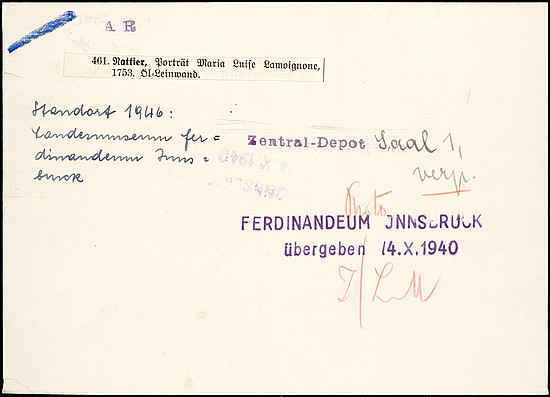 A R
461. Nattier, Porträt Maria Luise Lamoignone,
1753. Öl-Leinwand.
Standort 1946:
Landesmuseum Fer=
dinandeum Inns=
bruck
Zentral-Depot Saal 1,
verp.
Photo
FERDINANDEUM INNSBRUCK
übergeben 14.X.1940